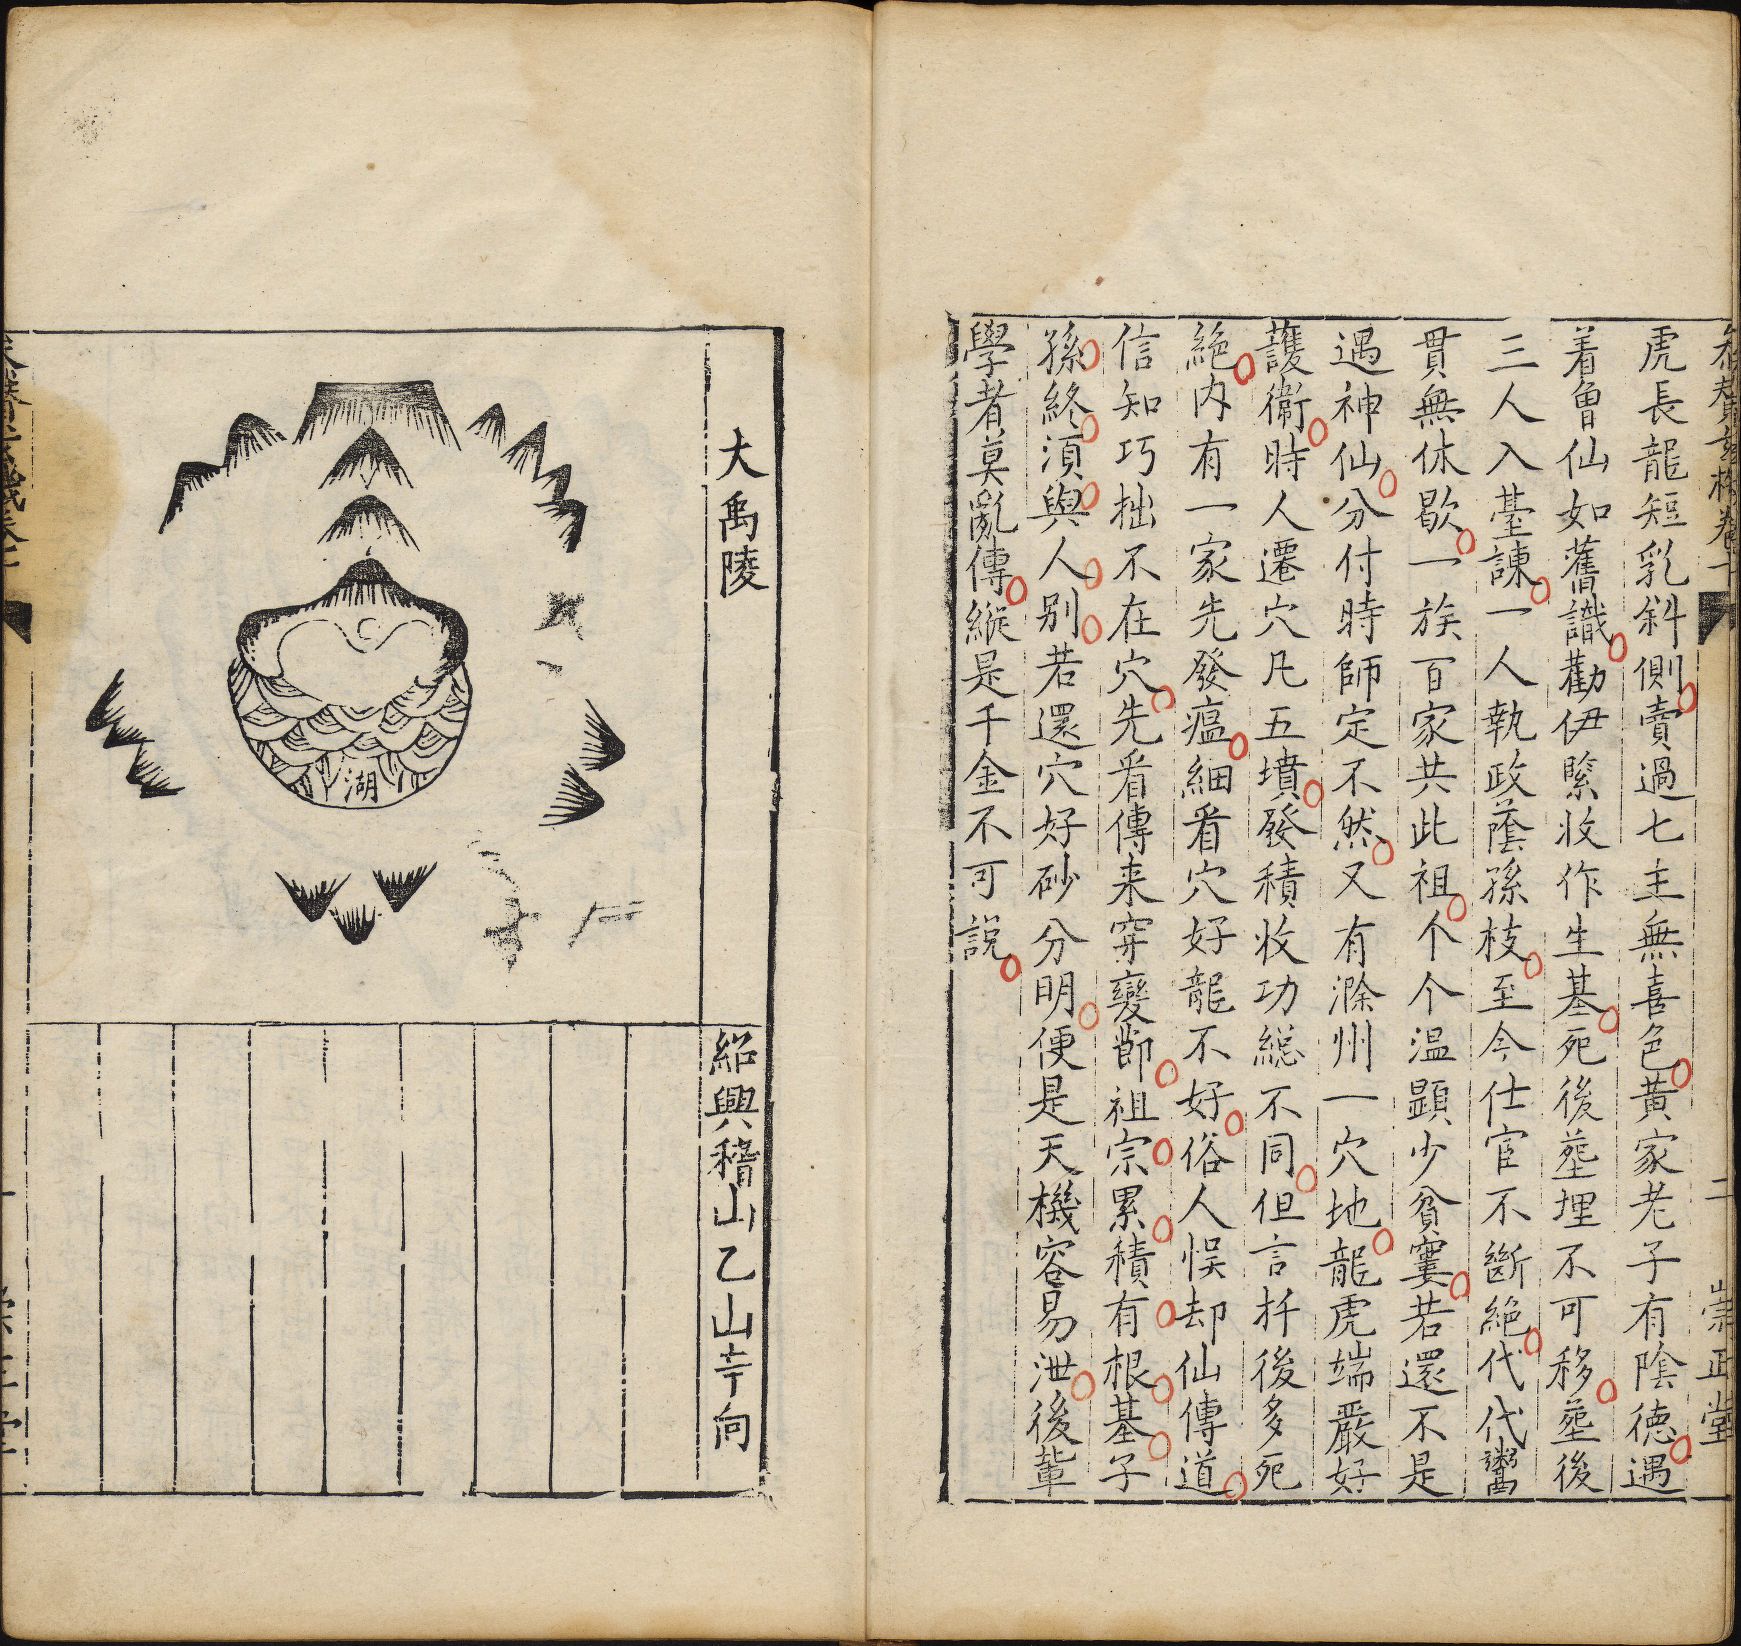 虎長龍短乳斜側賣過七主無喜色黃家老子有陰德遇
着曾仙如舊識勸伊緊收作生基死後塟埋不可移塟後
三人入臺諫一人執政蔭孫枝至今仕宦不斷絕代代
貫無休歇一族百家共此祖个个溫顯少貧窶若還不是
遇神仙分付時師定不然又有滁州一穴地龍虎端嚴好
護衛時人遷穴凡五墳發積收功総不同但言扦後多死
絕內有一家先發瘟細看穴好龍不好俗人悮却仙傳道
信知巧拙不在穴先看傳来穿變節祖宗累積有根基子
孫終須與人別若還穴好砂分明便是天機容易泄後輩
學者莫亂傳縱是千金不可説
崇正堂
二
大禹陵
湖
紹興稽山乙山辛向